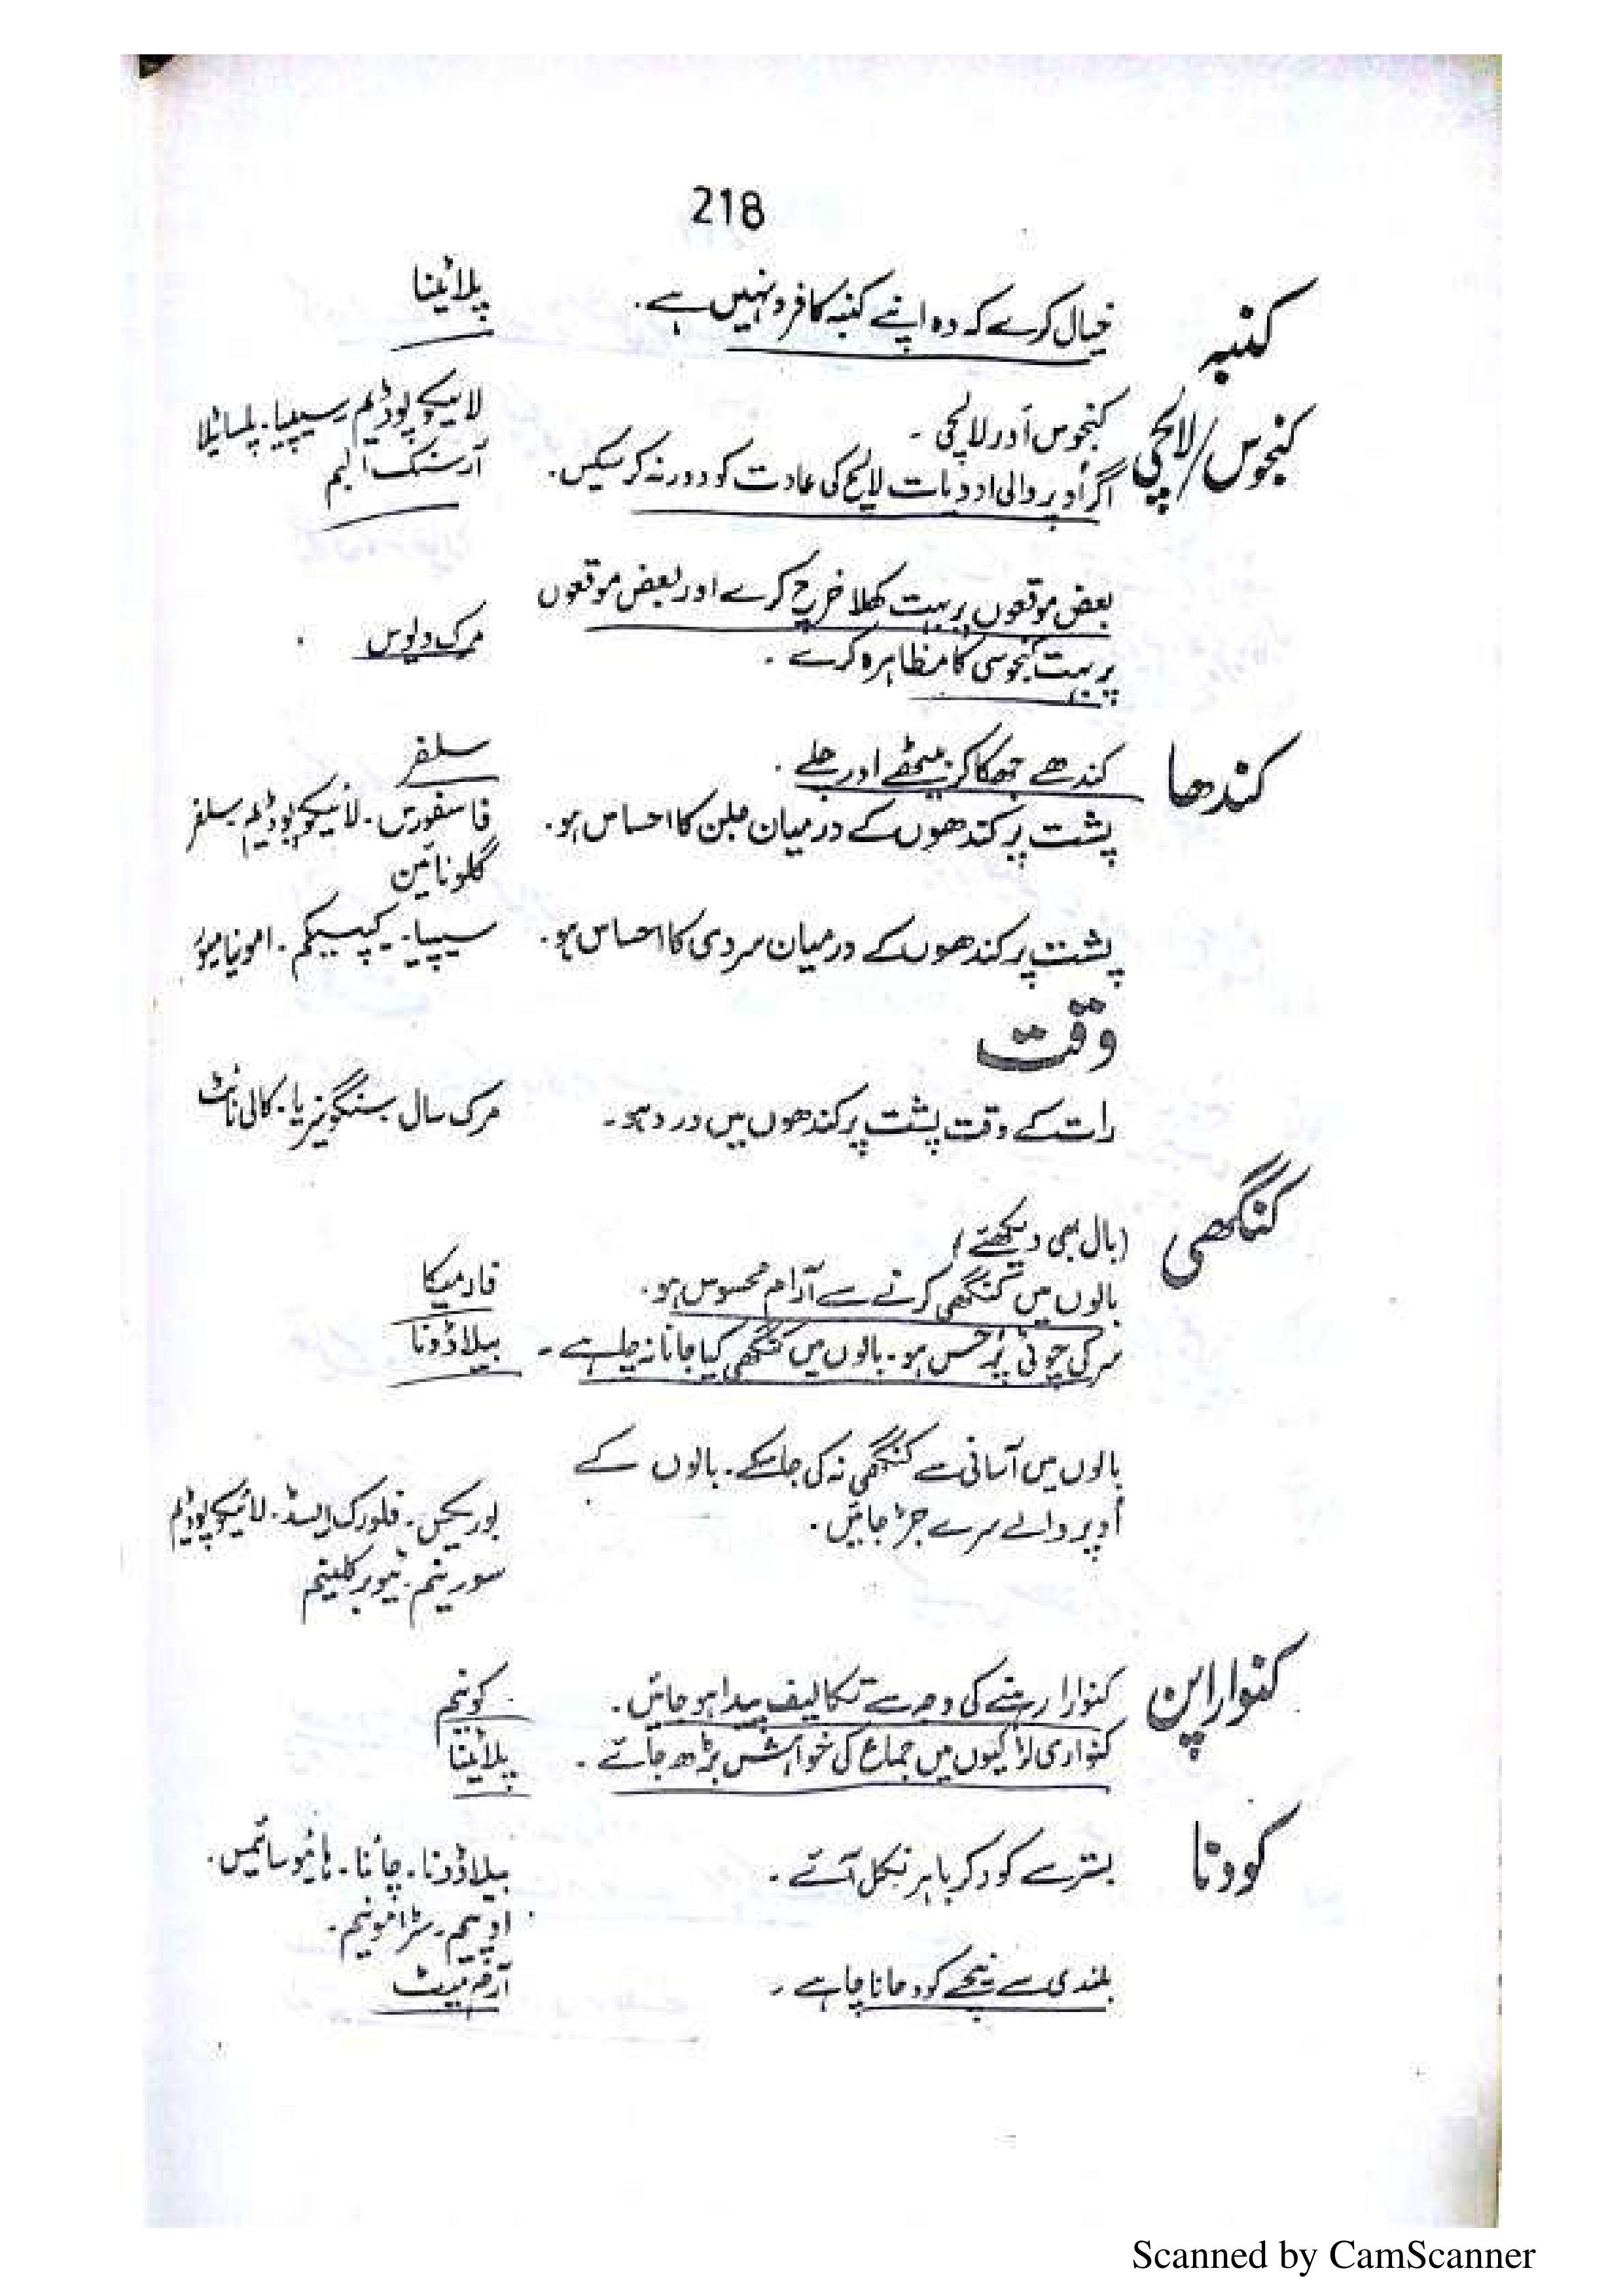 218
کنبہ خیال کرے کہ وہ اپنے کنبہ کا فرد نہیں ہے۔ پلاٹینا
کنجوس/لالچی کنجوس اور لالچی۔ لائیکوپوڈیم۔ سیپیا۔ پلساٹیلا
اگر اُوپر والی ادویات لالچ کی عادت کو دور نہ کر سکیں۔ آرسنک البم
بعض موقعوں پر بہت کھلا خرچ کرے اور بعض موقعوں
پر بہت کنجوسی کا مظاہرہ کرے۔ مرک ولوس
کندھا کندھے جھکا کر بیٹھے اور چلے۔ سلفر
پشت پر کندھوں کے درمیان جلن کا احساس ہو۔ فاسفورس۔ لائیکوپوڈیم۔ سلفر
گلونائین
پشت پر کندھوں کے درمیان سردی کا احساس ہو۔ سیپیا۔ کیپسیکم۔ امونیا میور
وقت
رات کے وقت پشت پر کندھوں میں درد ہو۔ مرک سال۔ سنگونیریا۔ کالی نائٹ
کنگھی (بال بھی دیکھئے)
بالوں میں کنگھی کرنے سے آرام محسوس ہو۔ فارمیکا
سر کی چوٹی پُر حس ہو۔ بالوں میں کنگھی کیا جانا نہ چاہے۔ بیلاڈونا
بالوں میں آسانی سے کنگھی نہ کی جا سکے۔ بالوں کے
اُوپر والے سرے جڑ جائیں۔ بوریکس۔ فلورک ایسڈ۔ لائیکوپوڈیم
سورینم۔ ٹیوبرکلینم
کنوارا پن کنوارا رہنے کی وجہ سے تکالیف پیدا ہو جائیں۔ کونیم
کنواری لڑکیوں میں جماع کی خواہش بڑھ جائے۔ پلاٹینا
کودنا بسترے کود کر باہر نکل آئے۔ بیلاڈونا۔ چائنا۔ ہائیوسائمس۔
اوپیم۔ سٹرامونیم۔
بلندی سے نیچے کود جانا چاہے۔ آرم میٹ
Scanned by CamScanner